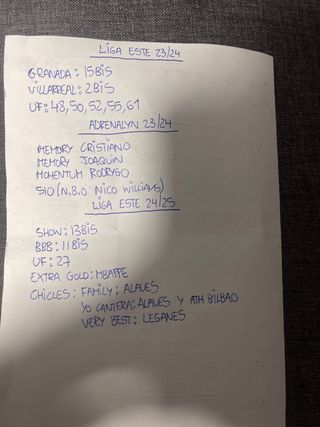 LIGA ESTE 23/24
GRANADA: 15BIS
VILLARREAL: 2BIS
UF: 48, 50, 52, 55, 61
ADRENALYN 23/24
MEMORY CRISTIANO
MEMORY JOAQUÍN
MOMENTUM RODRYGO
510 (N.B.O NICO WILLIAMS)
LIGA ESTE 24/25
SHOW: 13BIS
BBB: 11BIS
UF: 27
EXTRA GOLD: MBAPPE
CHICLES: FAMILY: ALAVES
YO CANTERA: ALAVES Y ATH BILBAO
VERY BEST: LEGANES